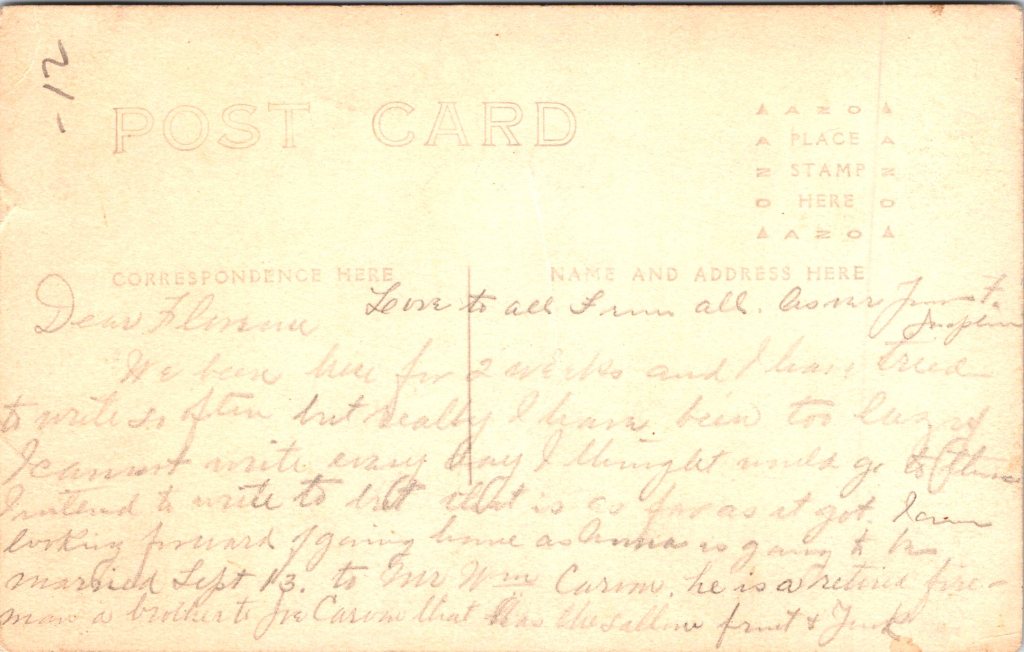 -12
POST CARD
AZO
PLACE
STAMP
HERE
AZO
CORRESPONDENCE HERE
NAME AND ADDRESS HERE
Love to all From all. As ever
Dear Florence
We been here for 2 weeks and I have tried
to write so often but really I have been too lazy
I cannot write every day I thought would go to
I intend to write to but that is as far as it got. I am
looking forward of going home as Anna is going to be
married Sept 13. to Mr Wm Carson. he is a retired fire-
man a brother to Joe Carson that has the fruit &